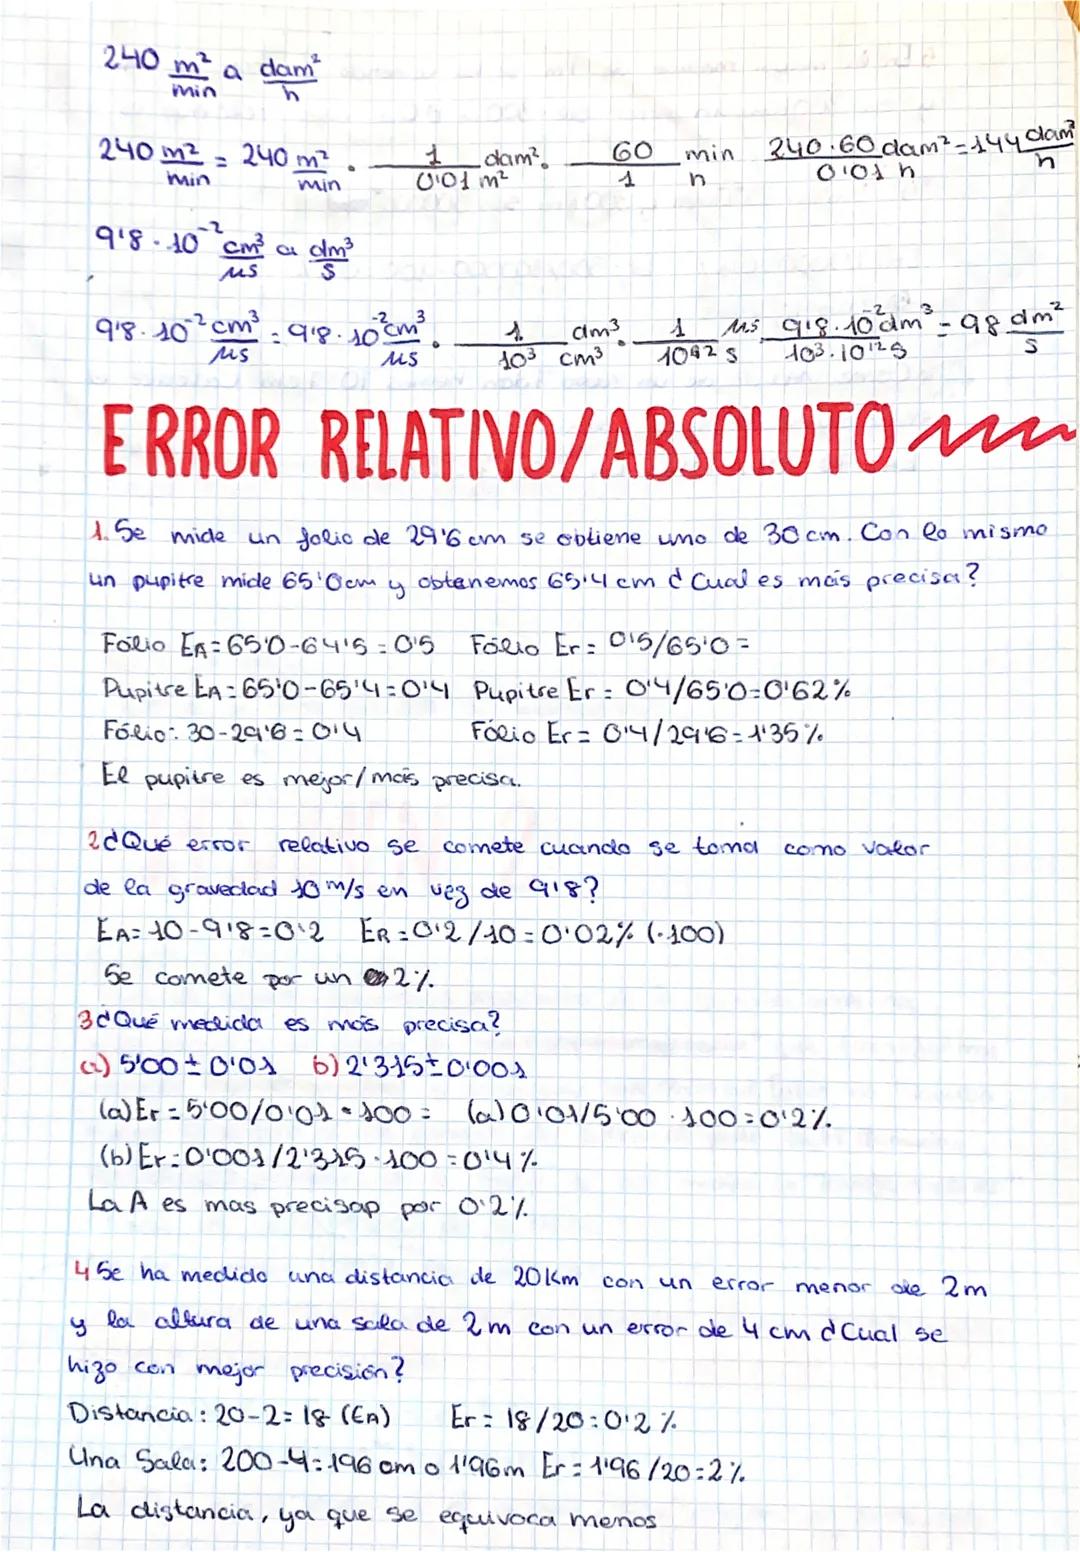 240 m²/min a dam²/h
240 m²/min = 240 m²/min · 1/0'01 dam²/m² · 60/1 min/h 240·60/0'01 dam²/h = 144 dam²/h
9'8·10⁻² cm³/µs a dm³/s
9'8·10⁻² cm³/µs = 9'8·10⁻² cm³/µs · 1/10³ dm³/cm³ · 1/10⁴² µs/s 9'8·10⁻² dm³/10³·10¹² s = 98 dm²/s
ERROR RELATIVO/ABSOLUTO
1. Se mide un folio de 29'6 cm se obtiene uno de 30 cm. Con lo mismo
un pupitre mide 65'0cm y obtenemos 65'4 cm ¿Cual es más precisa?
Fólio EA = 65'0-64'5 = 0'5 Fólio Er = 0'5/65'0 =
Pupitre EA = 65'0-65'4 = 0'4 Pupitre Er = 0'4/65'0=0'62%
Fólio: 30-29'6 = 0'4 Fólio Er = 0'4/29'6=1'35%
El pupitre es mejor/más precisa.
2 ¿Qué error relativo se comete cuando se toma como valor
de la gravedad 10 m/s en vez de 9'8?
EA = 10-9'8=0'2 ER = 0'2/10 = 0'02% (·100)
Se comete por un 2%.
3 ¿Qué medida es más precisa?
a) 5'00 ± 0'01 b) 2'315 ± 0'001
(a) Er = 5'00/0'01 · 100 = (a) 0'01/5'00 · 100 = 0'2%
(b) Er = 0'001/2'315 · 100 = 0'4%
La A es mas precisap por 0'2%
4 Se ha medido una distancia de 20Km con un error menor de 2m
y la altura de una sala de 2m con un error de 4 cm ¿Cual se
hizo con mejor precisión?
Distancia: 20-2 = 18 (EA) Er = 18/20 = 0'2%
Una Sala: 200-4 = 196 cm o 1'96m Er = 1'96/20 = 2%
La distancia, ya que se equivoca menos